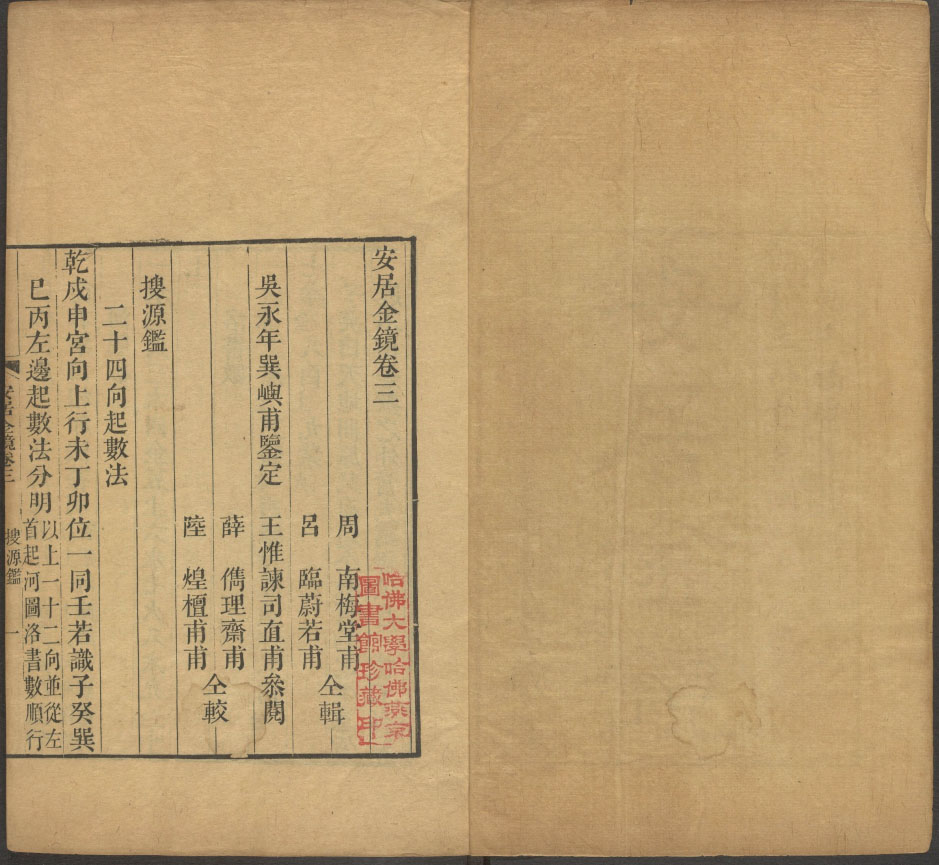 安居金鏡卷三
周　南梅堂甫
呂　臨蔚若甫
仝輯
吳永年巽嶼甫鑒定　王惟諫司直甫叅閱
薛　儁理齋甫
陸　煌檀甫甫
仝較
搜源鑑
二十四向起數法
乾戍申宮向上行未丁卯位一同壬若識子癸巽
巳丙左邊起數法分明
以上一十二向並從左
首起河圖洛書數順行
安居金鏡卷三
搜源鑑
一
哈佛大學哈佛燕京
圖書館珍藏印